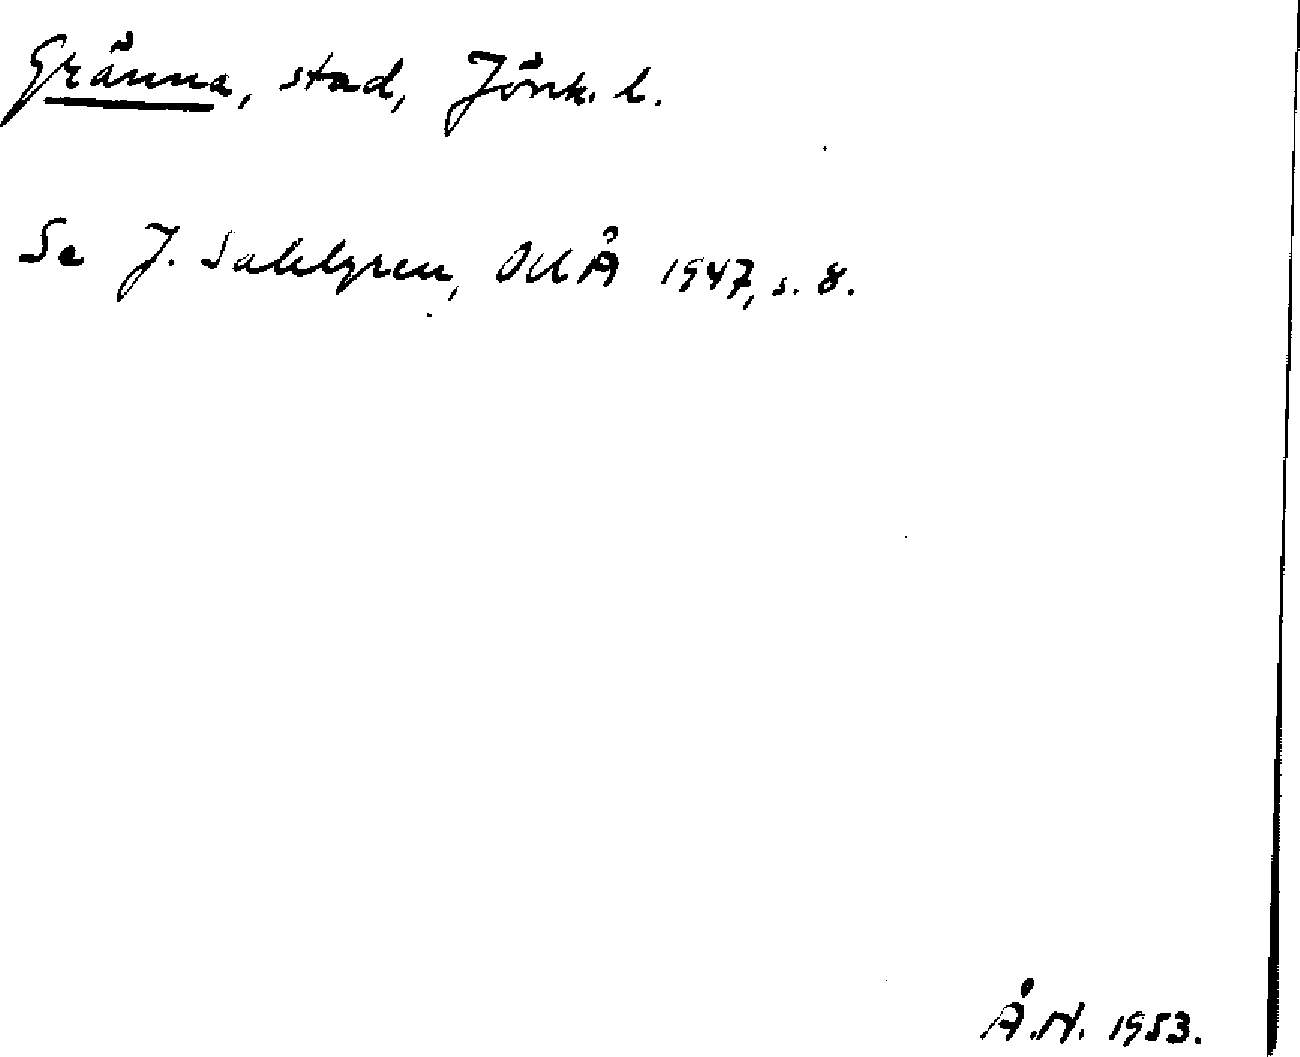 Gränna, stad, Jönk. l.
Se J. Sahlgren, OUÅ 1947, s. 8.
Å.N. 1953.